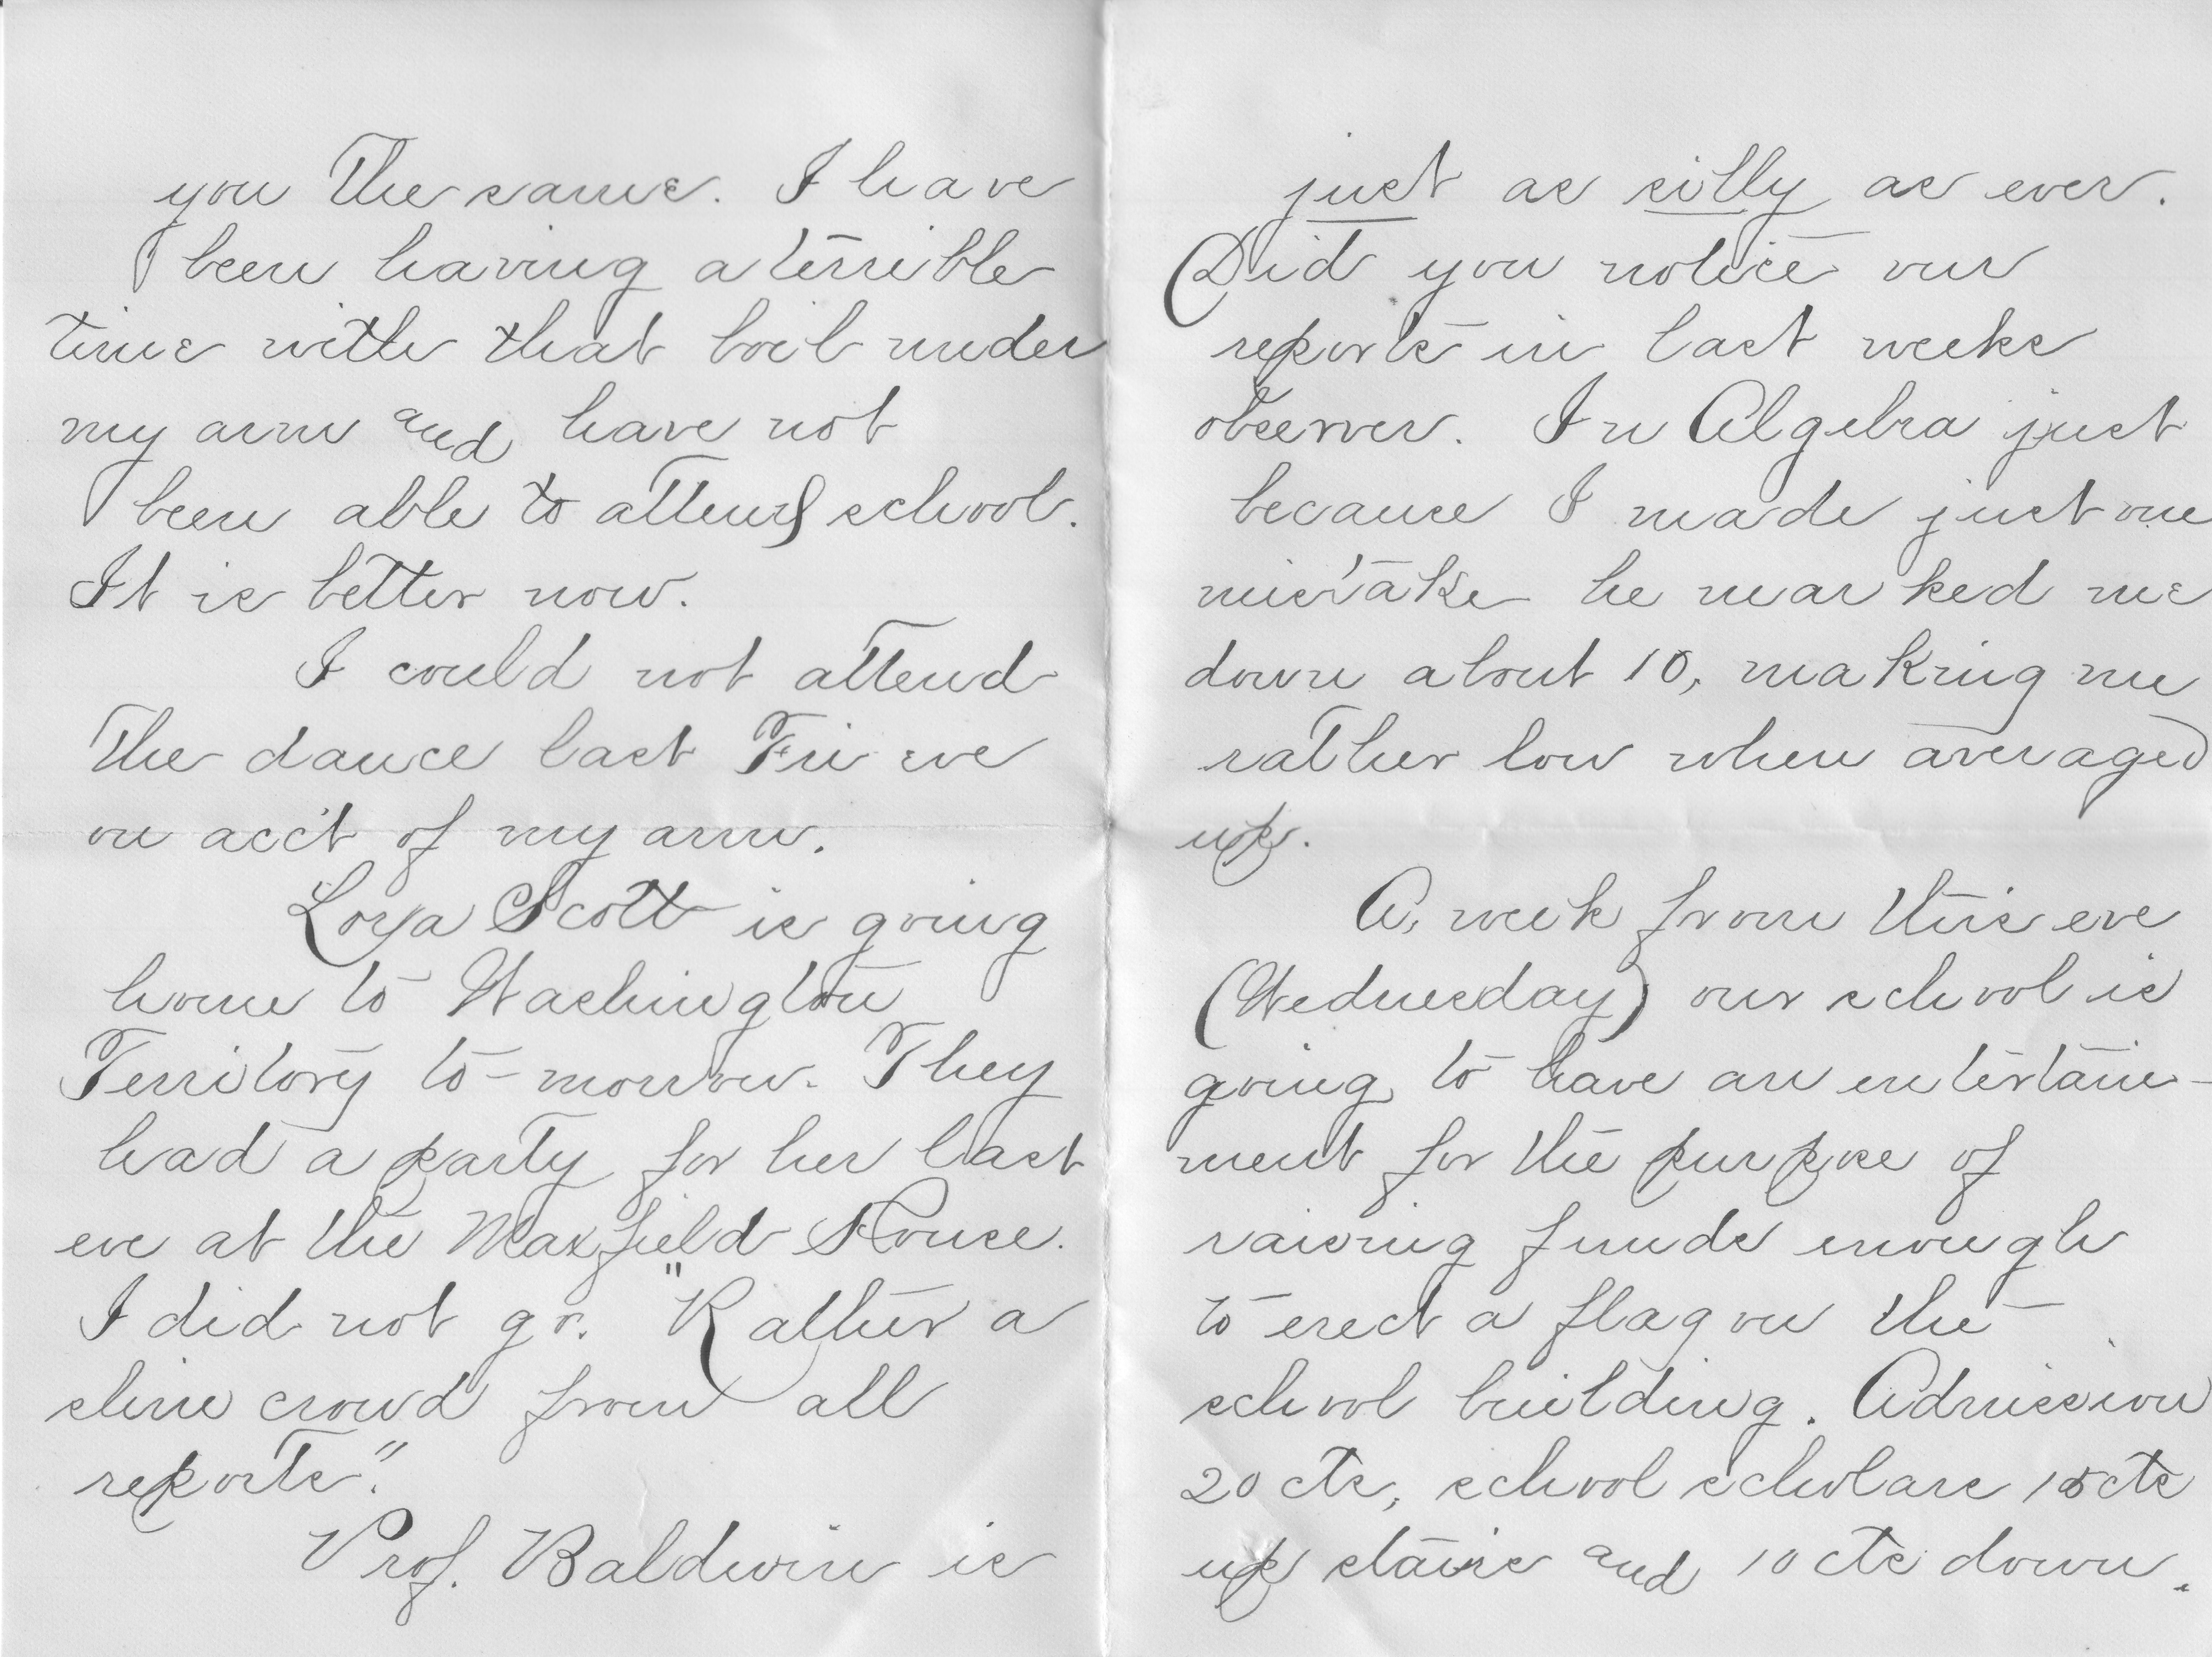 you the same. I have
been having a terrible
time with that boil under
my arm and have not
been able to attend school.
It is better now.
I could not attend
the dance last Fri eve
on acc't of my arm.
Scott is going
home to Washington
Territory to-morrow. They
had a party for her last
eve at the Maxfield House.
I did not go. "Rather a
slim crowd from all
reports".
Prof. Baldwin is
just as silly as ever.
Did you notice our
reports in last weeks
observer. In Algebra just
because I made just one
mistake he marked me
down about 10, making me
rather low when averaged
up.
A week from this eve
(Wednesday) our school is
going to have an entertain-
ment for the purpose of
raising funds enough
to erect a flag on the
school building. Admission
20 cts, school scholars 15 cts
up stairs and 10 cts down.